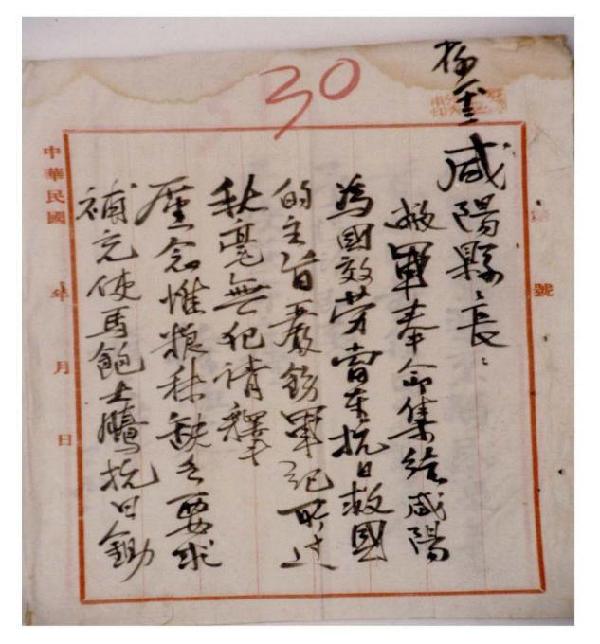 30
咸陽縣長：
敝軍奉命集結咸陽
為國效勞當本抗日救國
的主旨嚴飭軍紀所过
秋毫無犯請釋
廑念惟粮秣缺乏要求
補充使馬飽士騰抗日鋤
號
中華民國 年 月 日